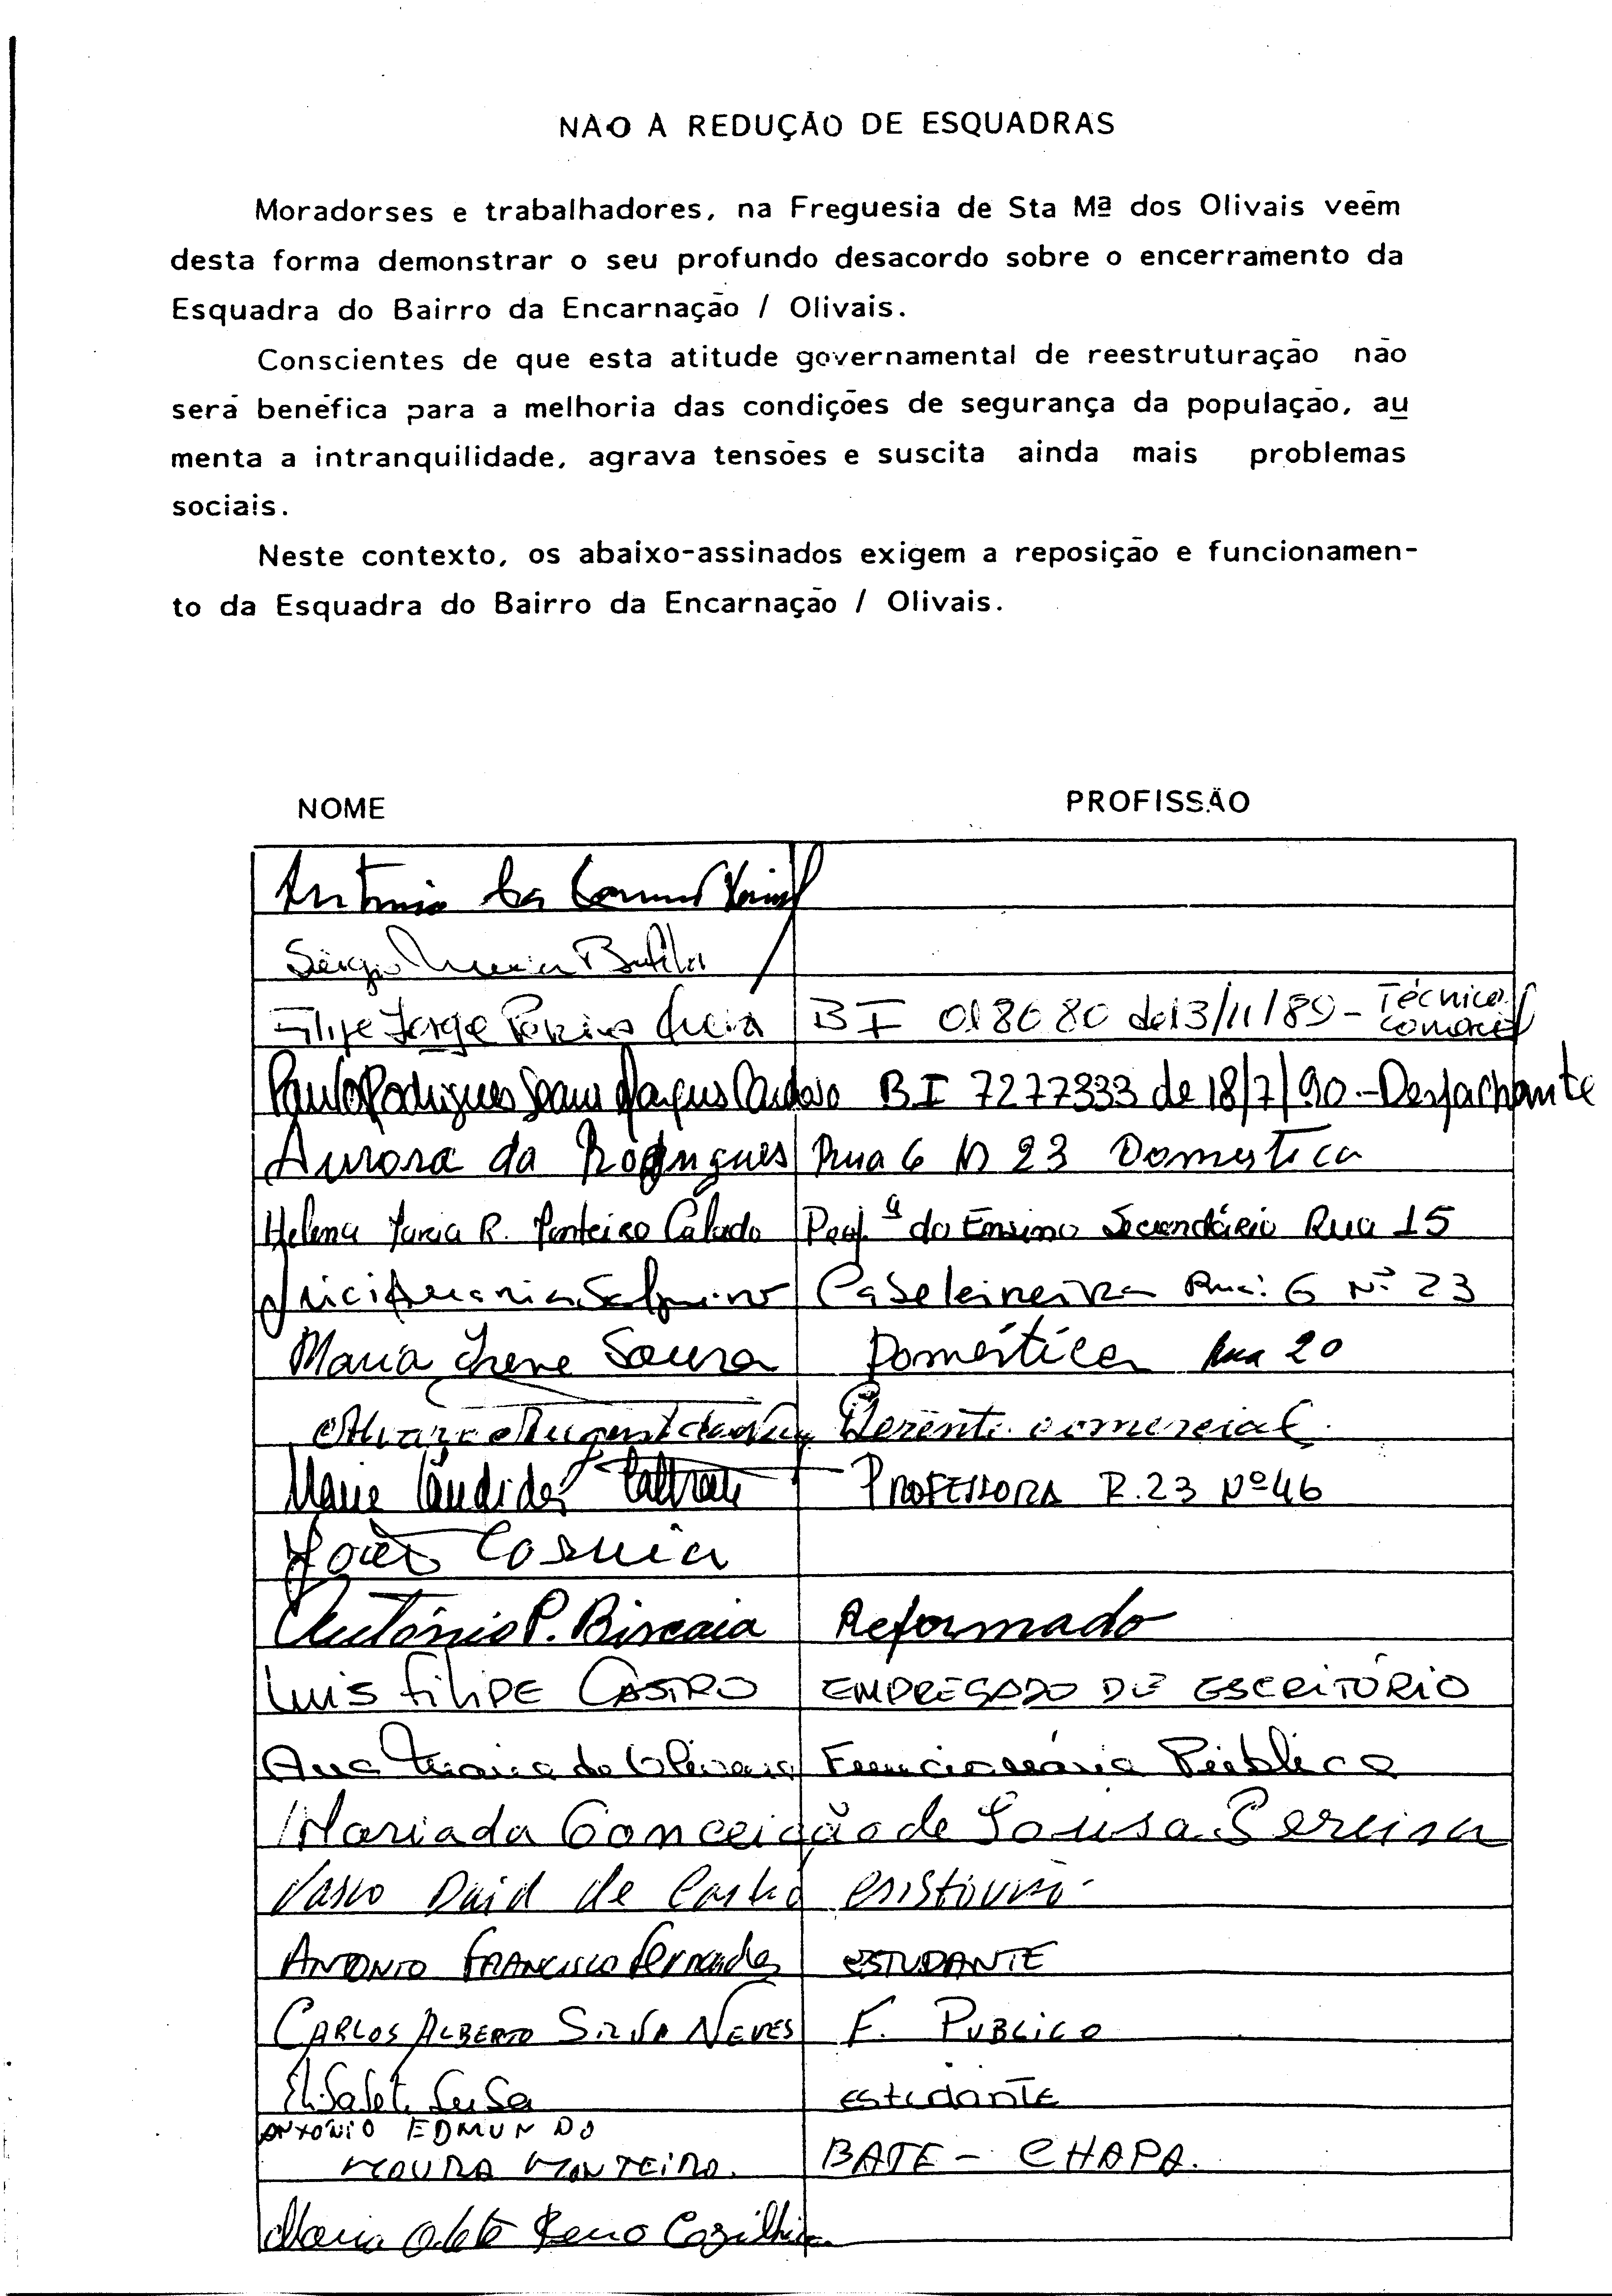 NÃO À REDUÇÃO DE ESQUADRAS
Moradorses e trabalhadores, na Freguesia de Sta Mª dos Olivais veêm
desta forma demonstrar o seu profundo desacordo sobre o encerramento da
Esquadra do Bairro da Encarnação / Olivais.
Conscientes de que esta atitude governamental de reestruturação não
será benéfica para a melhoria das condições de segurança da população, au
menta a intranquilidade, agrava tensões e suscita ainda mais problemas
sociais.
Neste contexto, os abaixo-assinados exigem a reposição e funcionamen-
to da Esquadra do Bairro da Encarnação / Olivais.
NOME PROFISSÃO
António
Sérgio
Filipe Jorge BI 018680 de 13/11/89 - Técnico
comercial
Paulo Rodrigues Cardoso BI 7277333 de 18/7/90 - Despachante
Aurora da Rodrigues Rua 6 N 23 Domestica
Helena Maria R. Monteiro Calado Prof.ª do Ensino Secundário Rua 15
Rua: 6 Nº 23
Maria Irene Sousa Doméstica Rua 20
Gerente comercial
Maria Cândida PROFESSORA R.23 Nº 46
João
António P. Biscaia Reformado
Luis Filipe CASTRO EMPREGADO DE ESCRITÓRIO
Ana Maria de Oliveira Funcionária Pública
Maria da Conceição de Sousa Pereira
Vasco de
ANTONIO FRANCISCO Fernandes ESTUDANTE
CARLOS ALBERTO SILVA NEVES F. PUBLICO
Elisabete estudante
ANTÓNIO EDMUNDO
MOURA MONTEIRO. BATE - CHAPA.
Maria Odete